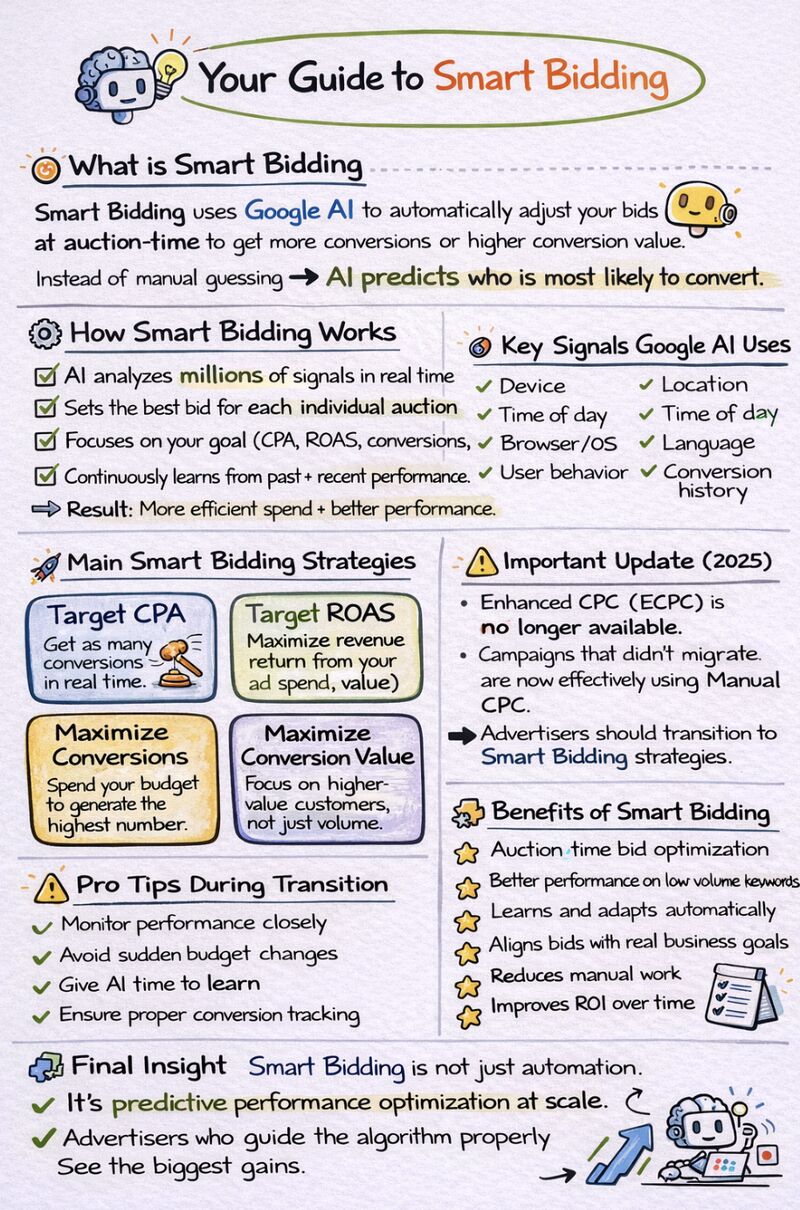 Your Guide to Smart Bidding
What is Smart Bidding
Smart Bidding uses Google AI to automatically adjust your bids
at auction-time to get more conversions or higher conversion value.
Instead of manual guessing → AI predicts who is most likely to convert.
How Smart Bidding Works
AI analyzes millions of signals in real time
Sets the best bid for each individual auction
Focuses on your goal (CPA, ROAS, conversions,
Continuously learns from past + recent performance.
Result: More efficient spend + better performance.
Key Signals Google AI Uses
Device
Time of day
Browser/OS
User behavior
Location
Time of day
Language
Conversion
history
Main Smart Bidding Strategies
Target CPA
Get as many
conversions
in real time.
Target ROAS
Maximize revenue
return from your
ad spend, value)
Maximize
Conversions
Spend your budget
to generate the
highest number.
Maximize
Conversion Value
Focus on higher-
value customers,
not just volume.
Important Update (2025)
• Enhanced CPC (ECPC) is
no longer available.
• Campaigns that didn't migrate.
are now effectively using Manual
CPC.
→ Advertisers should transition to
Smart Bidding strategies.
Benefits of Smart Bidding
Auction-time bid optimization
Better performance on low volume keywords
Learns and adapts automatically
Aligns bids with real business goals
Reduces manual work
Improves ROI over time
Pro Tips During Transition
Monitor performance closely
Avoid sudden budget changes
Give AI time to learn
Ensure proper conversion tracking
Final Insight Smart Bidding is not just automation.
It's predictive performance optimization at scale.
Advertisers who guide the algorithm properly
See the biggest gains.